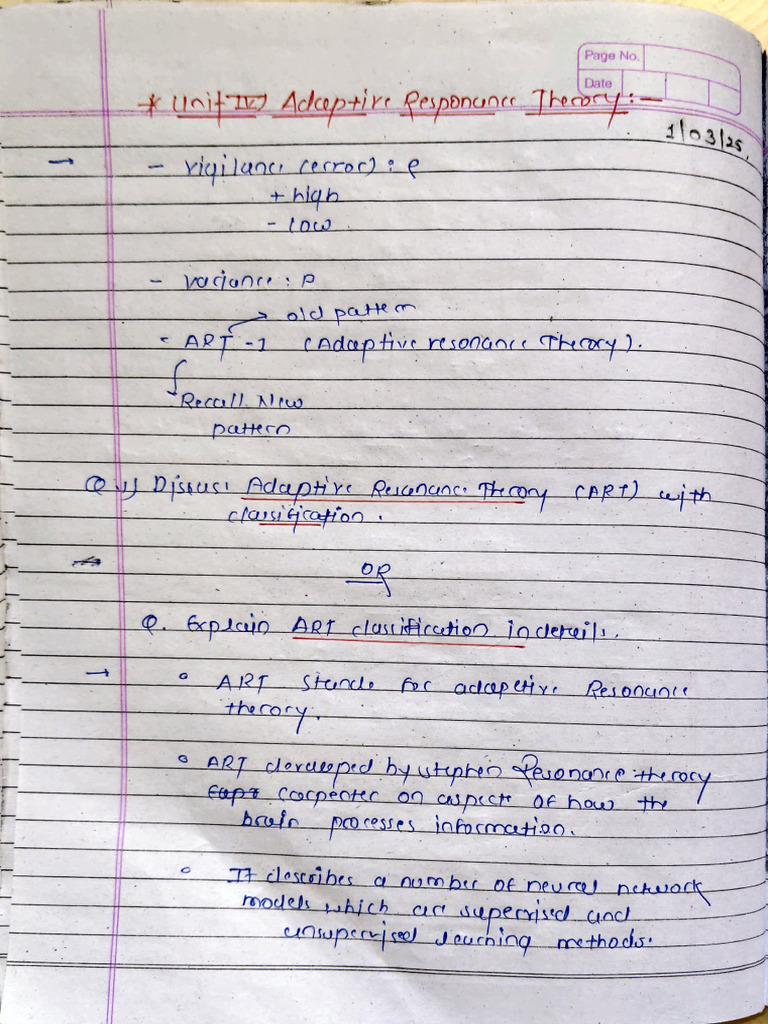 Page No.
Date
* Unit IV) Adaptive Responance Theory :-
1/03/25.
→ - vigilance (error) : ρ
+ high
- low
- variance : ρ
→ old pattern
- ART - 1 (Adaptive resonance Theory).
→ Recall New
pattern
Q 1) Discuss Adaptive Resonance Theory (ART) with
classification.
OR
Q. Explain ART classification in details.
→ ° ART stands for adaptive Resonance
theory.
° ART developed by stephen Resonance theory
carpenter on aspects of how the
brain processes information.
° It describes a number of neural network
models which are supervised and
unsupervised learning methods.